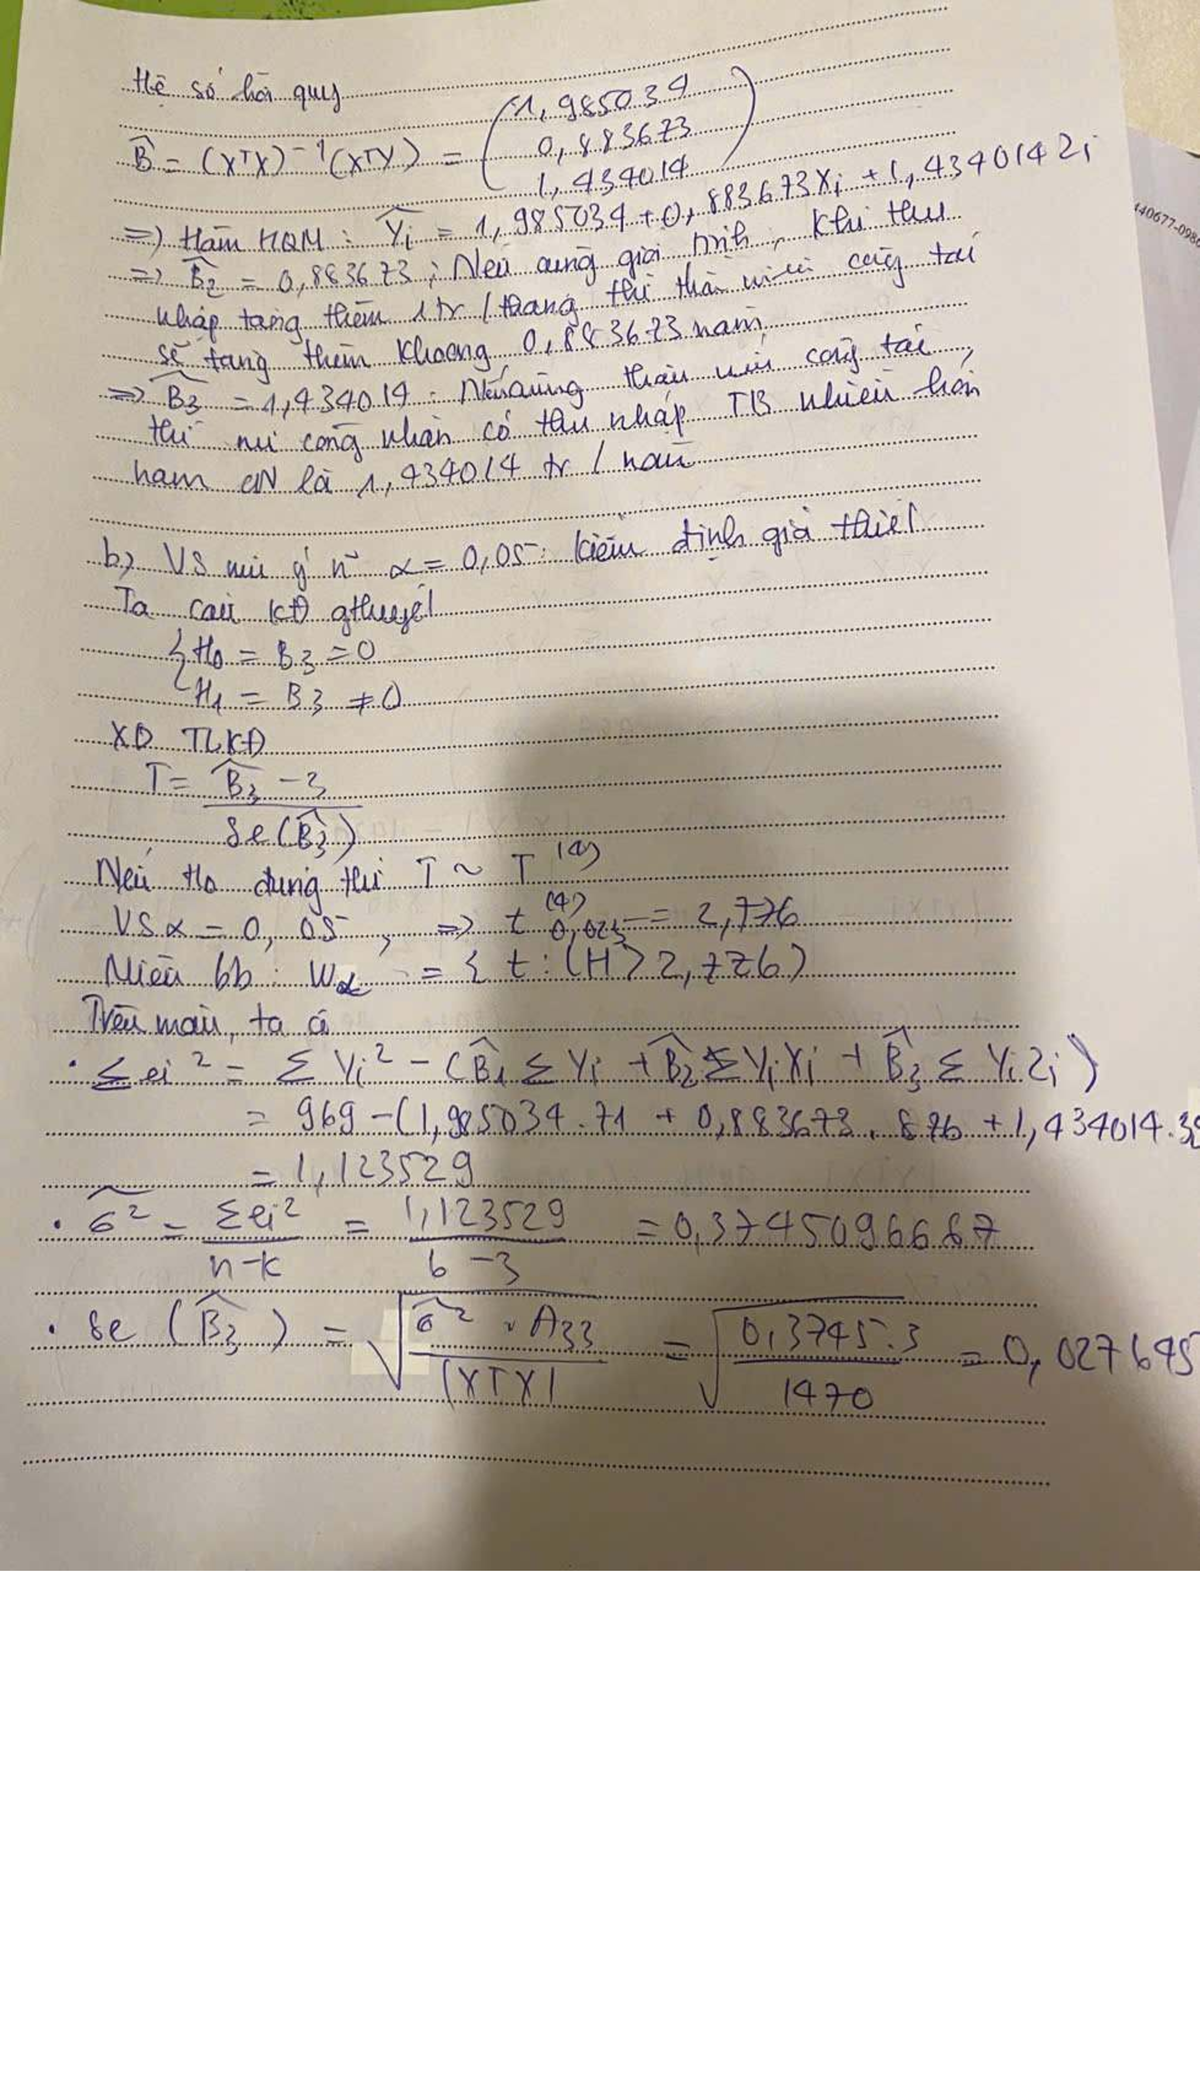 Hệ số hồi quy
B̂ = (XTX)⁻¹(XTY) = (1,985034
0,883673
1,434014)
=> Hàm HQM : Ŷi = 1,985034 + 0,883673Xi + 1,434014Zi
=> B̂2 = 0,883673 : Nếu cùng giới tính, khi thu
nhập tăng thêm 1 tr / tháng thì công tác
sẽ tăng thêm khoảng 0,883673 năm
=> B̂3 = 1,434014 : Nếu cùng công tác,
thì nữ công nhân có thu nhập TB nhiều hơn
nam CN là 1,434014 tr /
b) VS mức ý n~ α = 0,05 : kiểm định giả thiết
Ta cần KĐ gthuyết
{H0 = B3 = 0
H1 = B3 ≠ 0
XĐ TLKĐ
T = B̂3 - 3
Se(B̂3)
Nếu H0 đúng thì T ~ T (4)
VS α = 0,05 , => t (4) 0,025 = 2,776
Miền bb : Wα = { t : (H > 2,776)
Trên mẫu, ta có
• Σei² = ΣYi² - (B̂1 ΣYi + B̂2 ΣYiXi + B̂3 ΣYiZi)
= 969 - (1,985034.71 + 0,883673.876 + 1,434014.
= 1,123529
• σ̂² = Σei² / n-k = 1,123529 / 6-3 = 0,3745096667
• Se (B̂3) = √(σ̂² . A33 / |XTX|) = √(0,3745.3 / 1470) = 0,027645
440677-098